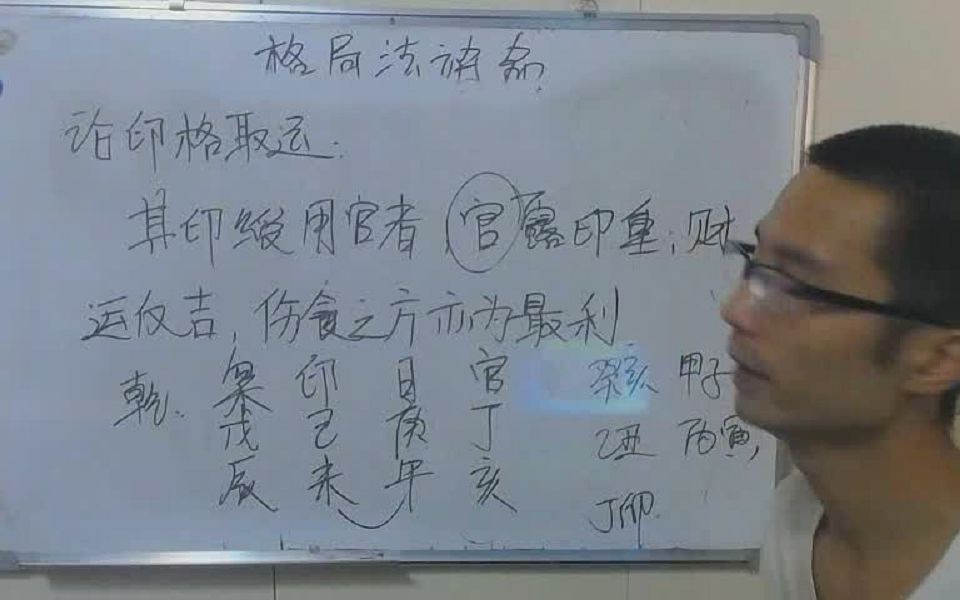 格局法讲命
论印格取运:
其印绶用官者,官露印重;财
运仅吉,伤食之方亦为最利
枭 印 日 官
乾: 戊 己 庚 丁
辰 未 午 亥
癸亥 甲子
乙丑 丙寅,
丁卯.